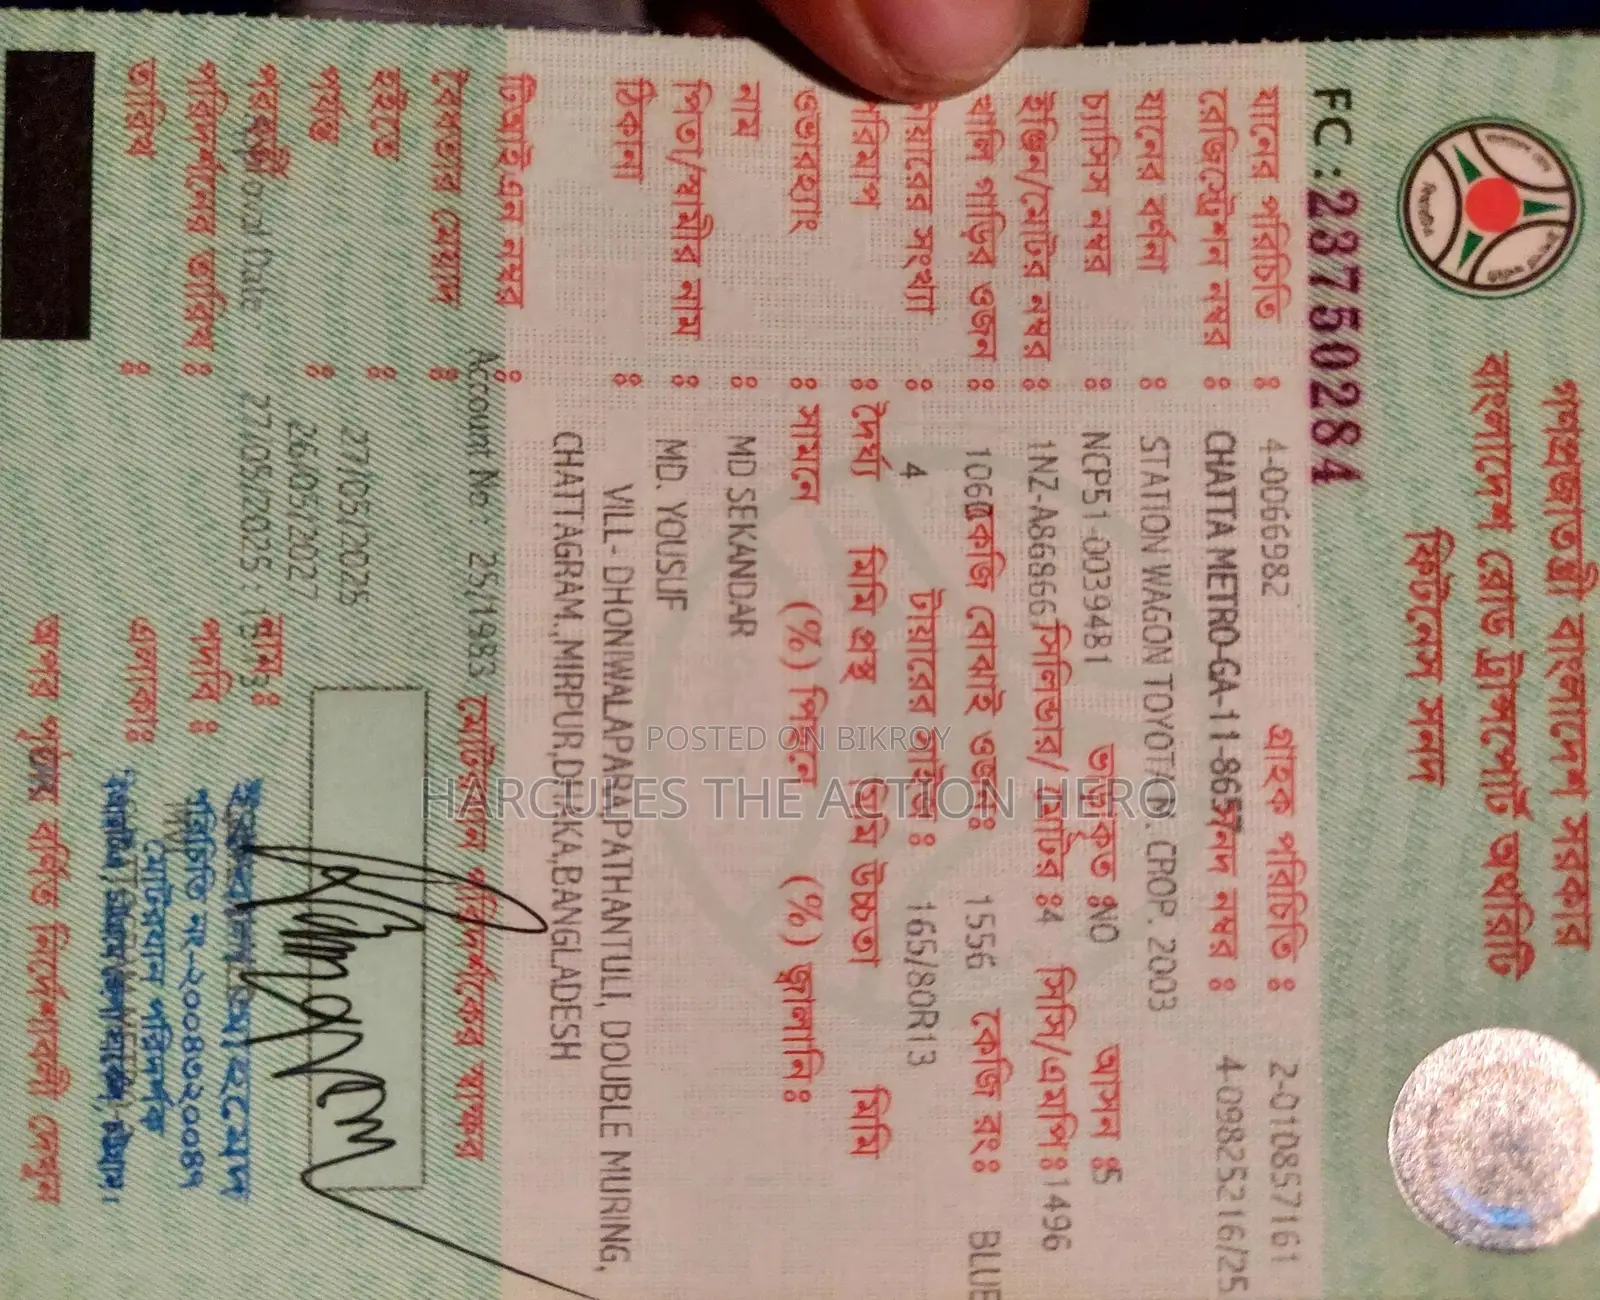 গণপ্রজাতন্ত্রী বাংলাদেশ সরকার
বাংলাদেশ রোড ট্রান্সপোর্ট অথরিটি
ফিটনেস সনদ
FC : 23750284
যানের পরিচিতি : 4-0066982 গ্রাহক পরিচিতি : 2-010857161
রেজিস্ট্রেশন নম্বর : CHATTA METRO-GA-11-8657 সনদ নম্বর : 4-09825216/25
যানের বর্ণনা : STATION WAGON TOYOTA N. CROP. 2003
চ্যাসিস নম্বর : NCP51-0039481 ভাড়াকৃত : NO আসন : 5
ইঞ্জিন/মোটর নম্বর : 1NZ-A86866 সিলিন্ডার/ মোটর : 4 সিসি/এমপি : 1496
খালি গাড়ির ওজন : 1060 কেজি বোঝাই ওজন : 1556 কেজি রং : BLUE
টায়ারের সংখ্যা : 4 টায়ারের সাইজ : 165/80R13
পরিমাপ : দৈর্ঘ্য মিমি প্রস্থ মিমি উচ্চতা মিমি
ওভারহ্যাং : সামনে (%) পিছনে (%) জ্বালানি :
নাম : MD SEKANDAR
পিতা/স্বামীর নাম : MD. YOUSUF
ঠিকানা : VILL- DHONIWALAPARA,PATHANTULI, DOUBLE MURING,
CHATTAGRAM.,MIRPUR,DHAKA,BANGLADESH
টিআইএন নম্বর :
Account No : 25,1983 মোটরযান পরিদর্শকের স্বাক্ষর
বৈধতার মেয়াদ :
হইতে : 27/05/2025
পর্যন্ত : 26/05/2027
পরবর্তী
Approval Date : 27/05/2025
পরিদর্শনের তারিখ :
তারিখ :
নাম :
পদবি :
পরিচিতি নং-২০০৪৭২০০৪৭
মোটরযান পরিদর্শক
এলাকা :
অপর পৃষ্ঠায় বর্ণিত নির্দেশাবলী দেখুন
POSTED ON BIKROY
HARCULES THE ACTION HERO